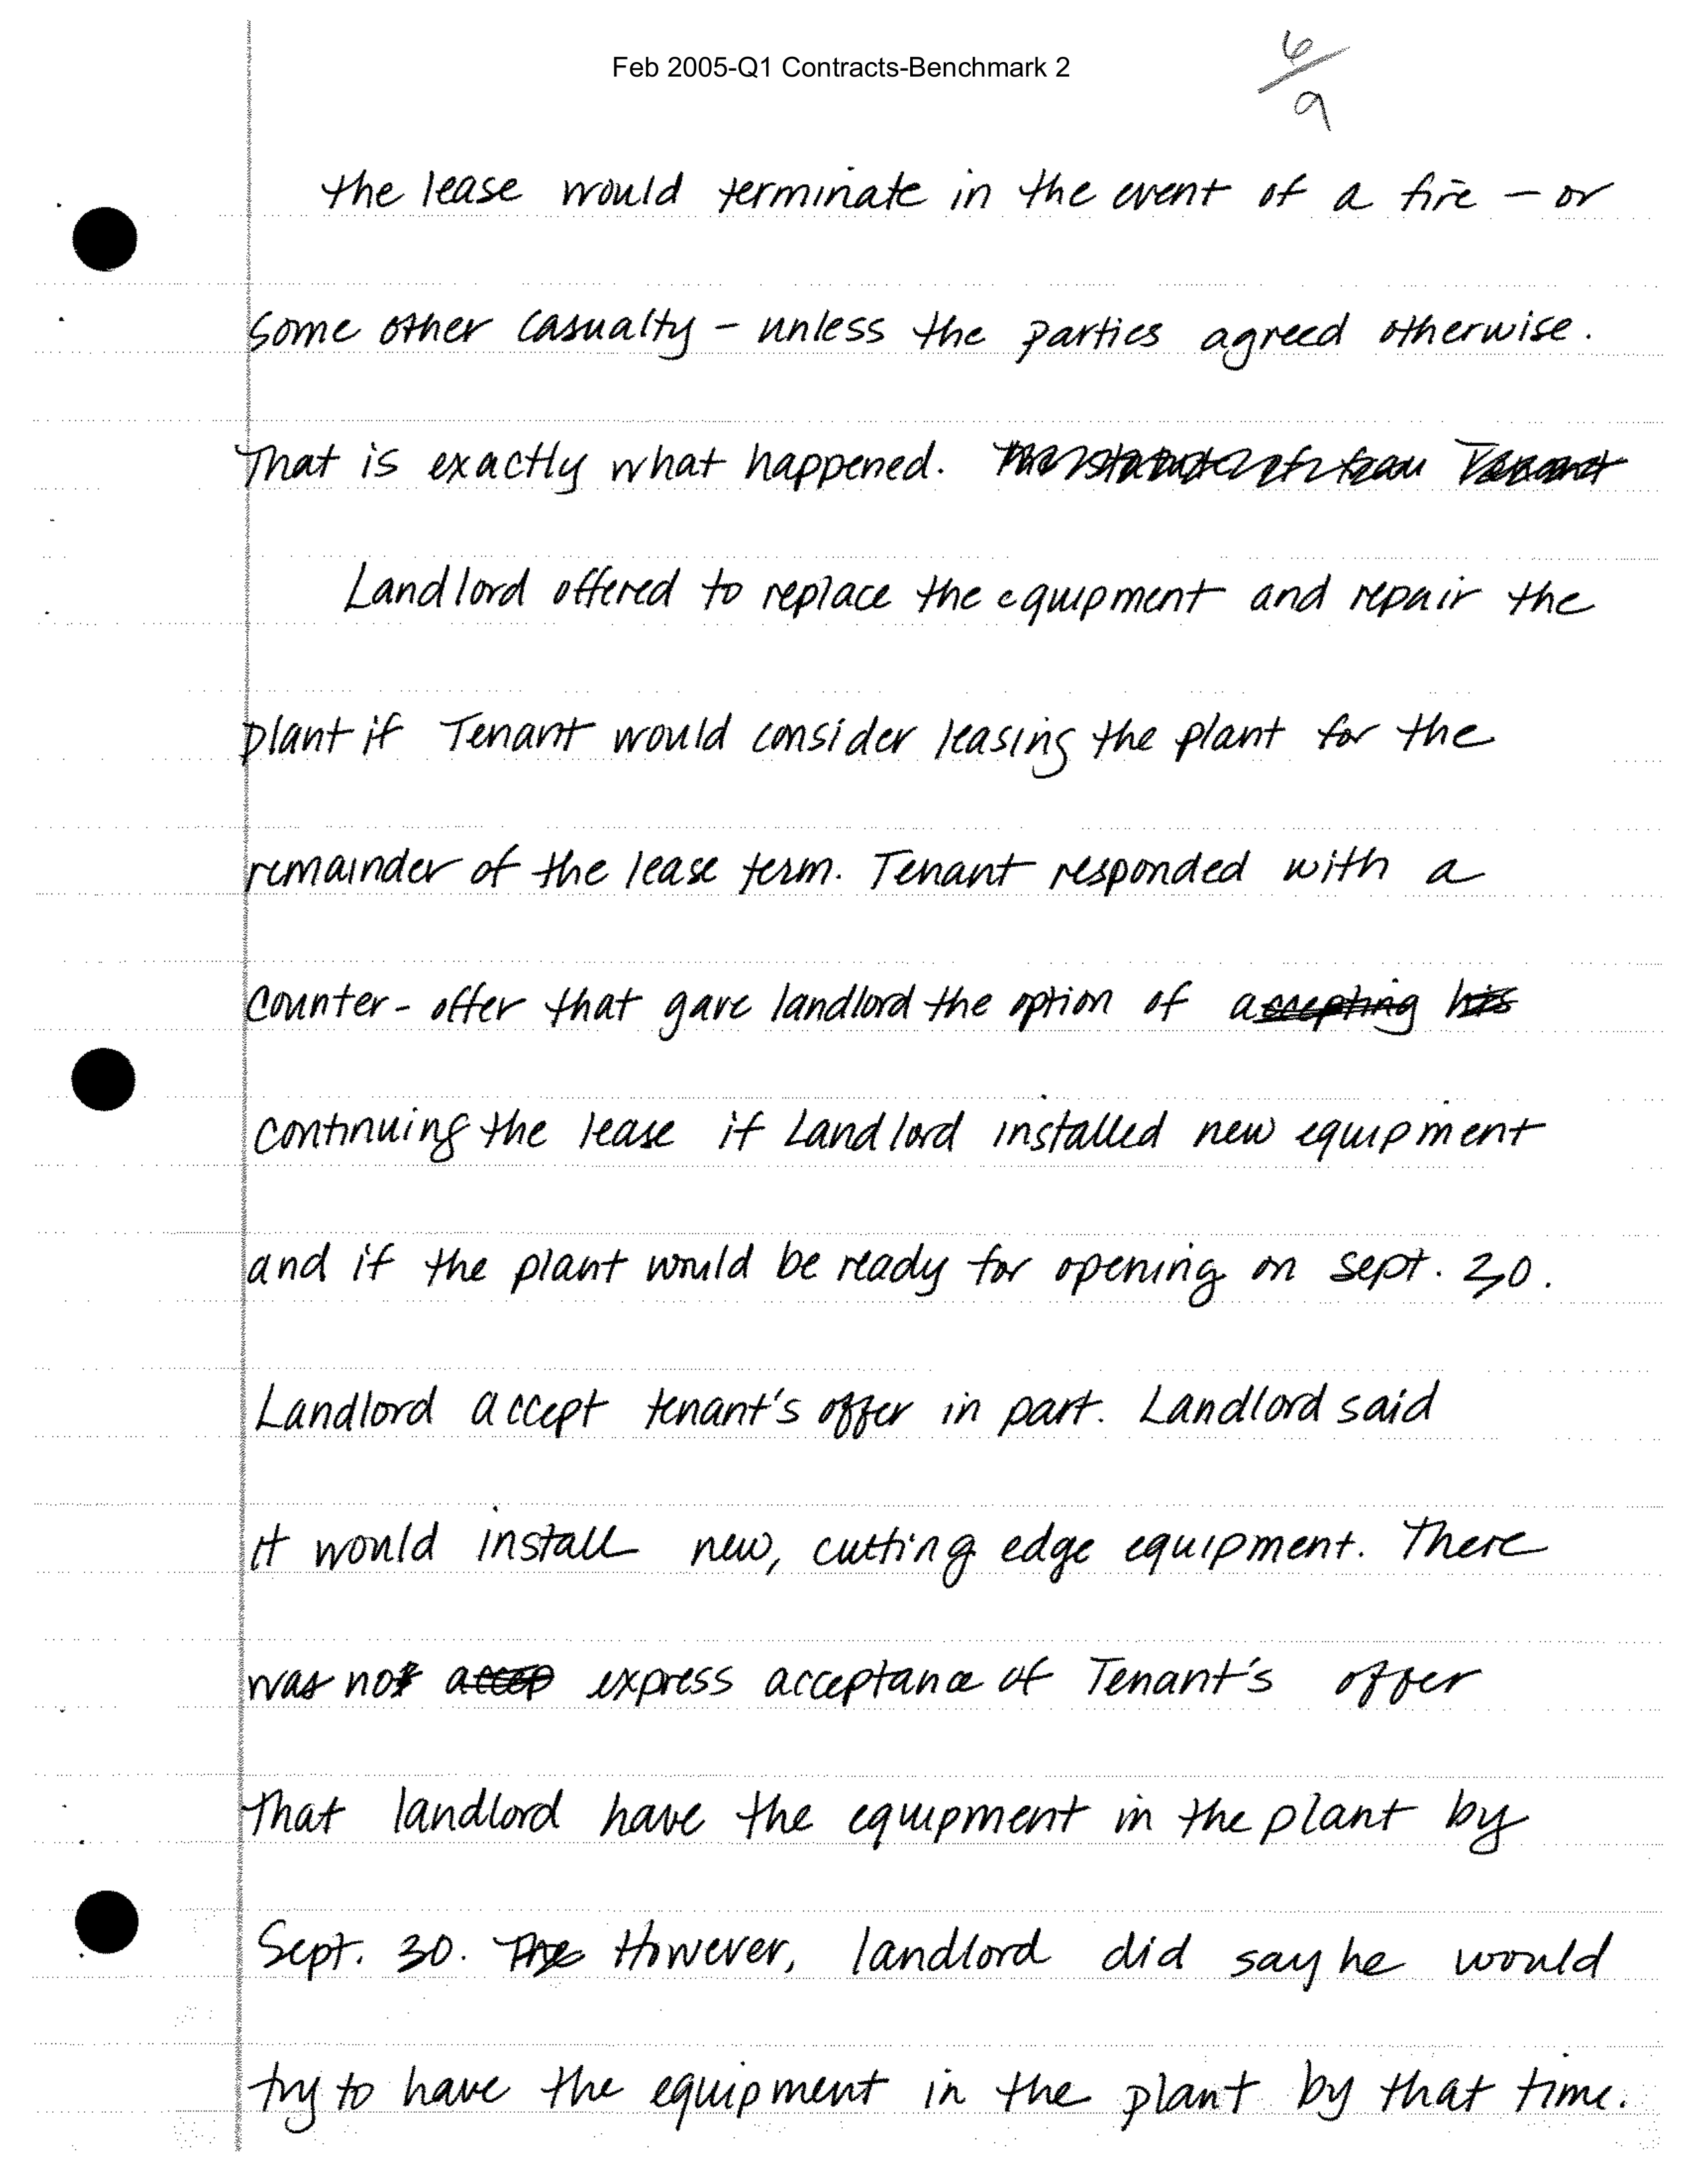 Feb 2005-Q1 Contracts-Benchmark 2
6/9
the lease would terminate in the event of a fire – or
some other casualty – unless the parties agreed otherwise.
That is exactly what happened.
Landlord offered to replace the equipment and repair the
plant if Tenant would consider leasing the plant for the
remainder of the lease term. Tenant responded with a
counter-offer that gave landlord the option of accepting his
continuing the lease if Landlord installed new equipment
and if the plant would be ready for opening on sept. 30.
Landlord accept tenant's offer in part. Landlord said
it would install new, cutting edge equipment. There
was not accep express acceptance of Tenant's offer
That landlord have the equipment in the plant by
Sept. 30. The However, landlord did say he would
try to have the equipment in the plant by that time.